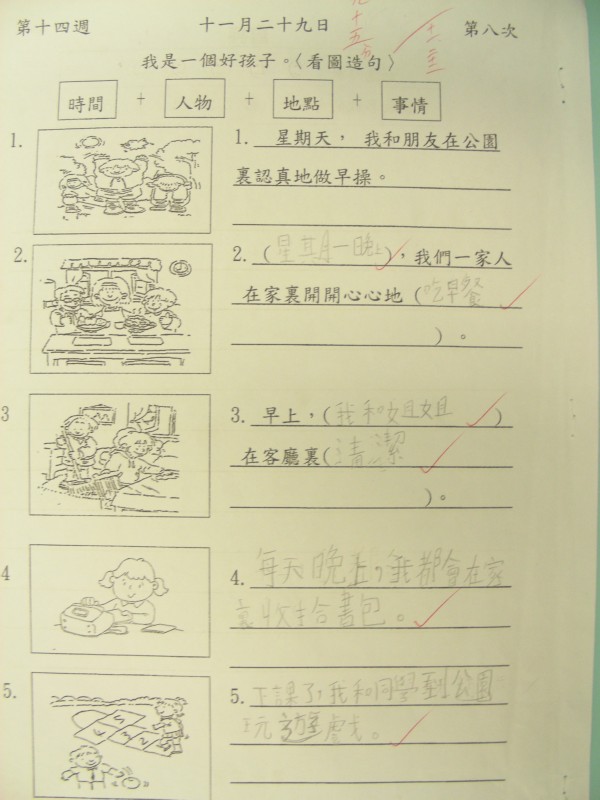 第十四週 十一月二十九日 第八次
九十五分
我是一個好孩子。〈看圖造句〉
時間 + 人物 + 地點 + 事情
1. 1. 星期天， 我和朋友在公園
裏認真地做早操。
2. 2. (星期一晚上)，我們一家人
在家裏開開心心地 (吃早餐
) 。
3 3. 早上，(我和姐姐 )
在客廳裏(清潔
)。
4 4. 每天晚上，我都會在家
裏收拾書包。
5. 5. 下課了，我和同學到公園
玩遊戲。